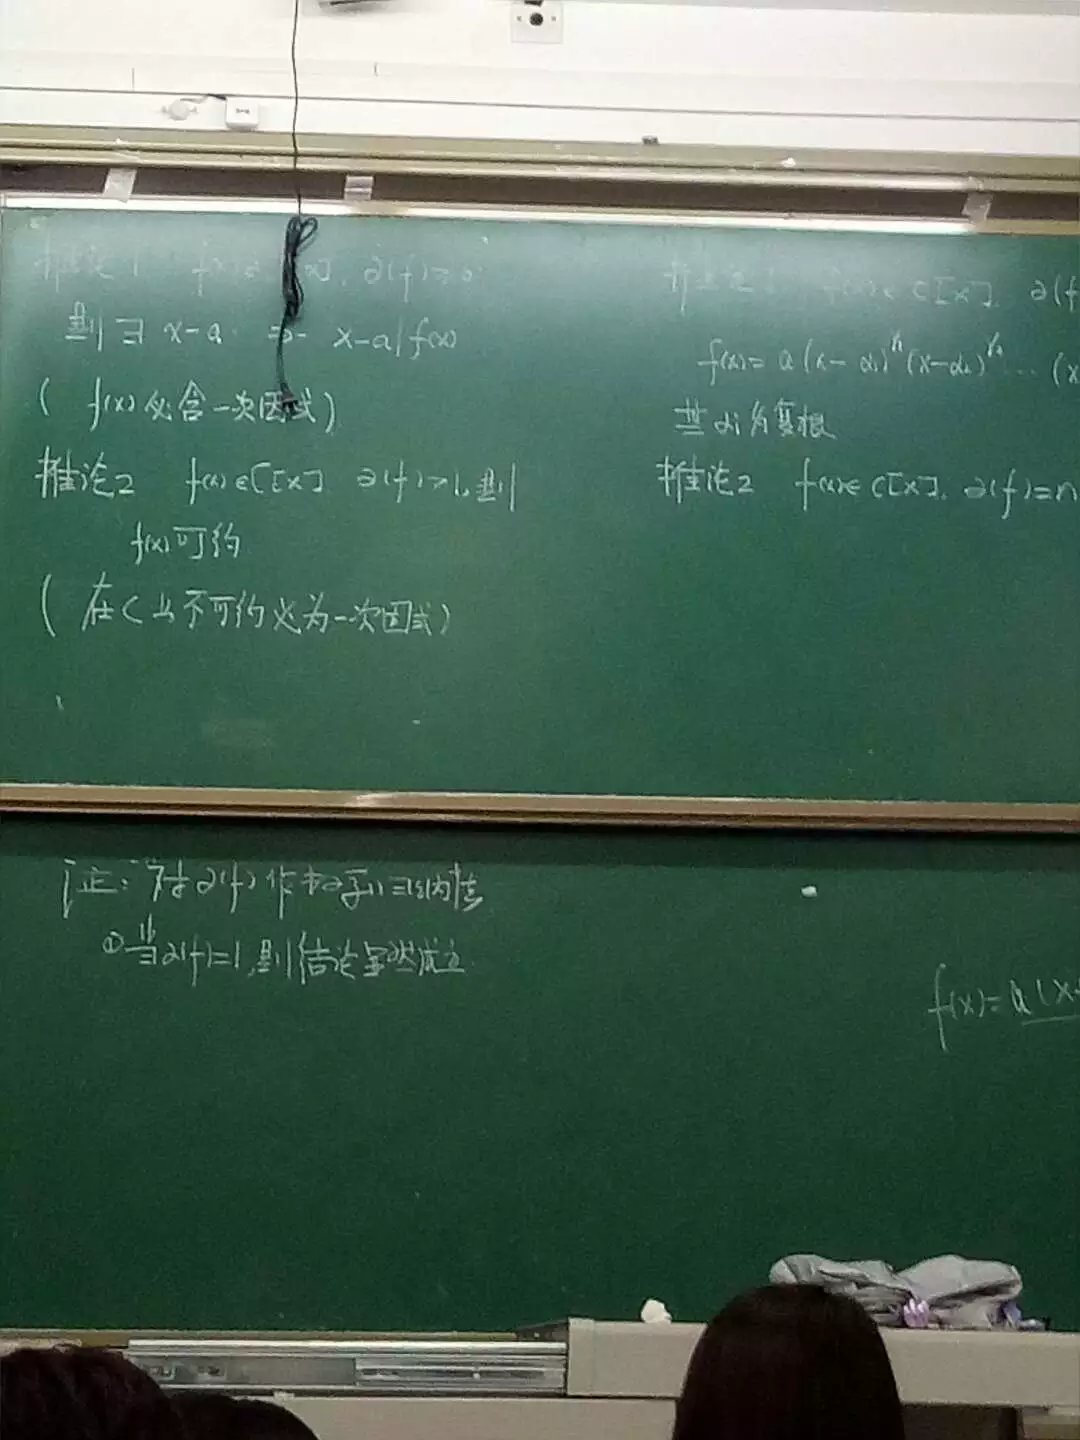 推论1 f(x)∈ [x]. ∂(f)>0
则∃ x-a ⇒ x-a|f(x)
( f(x)必含一次因式)
推论2 f(x)∈C[x] ∂(f)>1, 则
f(x)可约
(在C上不可约必为一次因式)
推论1 f(x)∈C[x]. ∂(f
f(x)= a(x-α₁)^r₁(x-α₂)^r₂ ... (x
其αi为复根
推论2 f(x)∈C[x]. ∂(f)=n
证: 对∂(f)作数学归纳法
①当∂(f)=1, 则结论显然成立
f(x)=a(x-